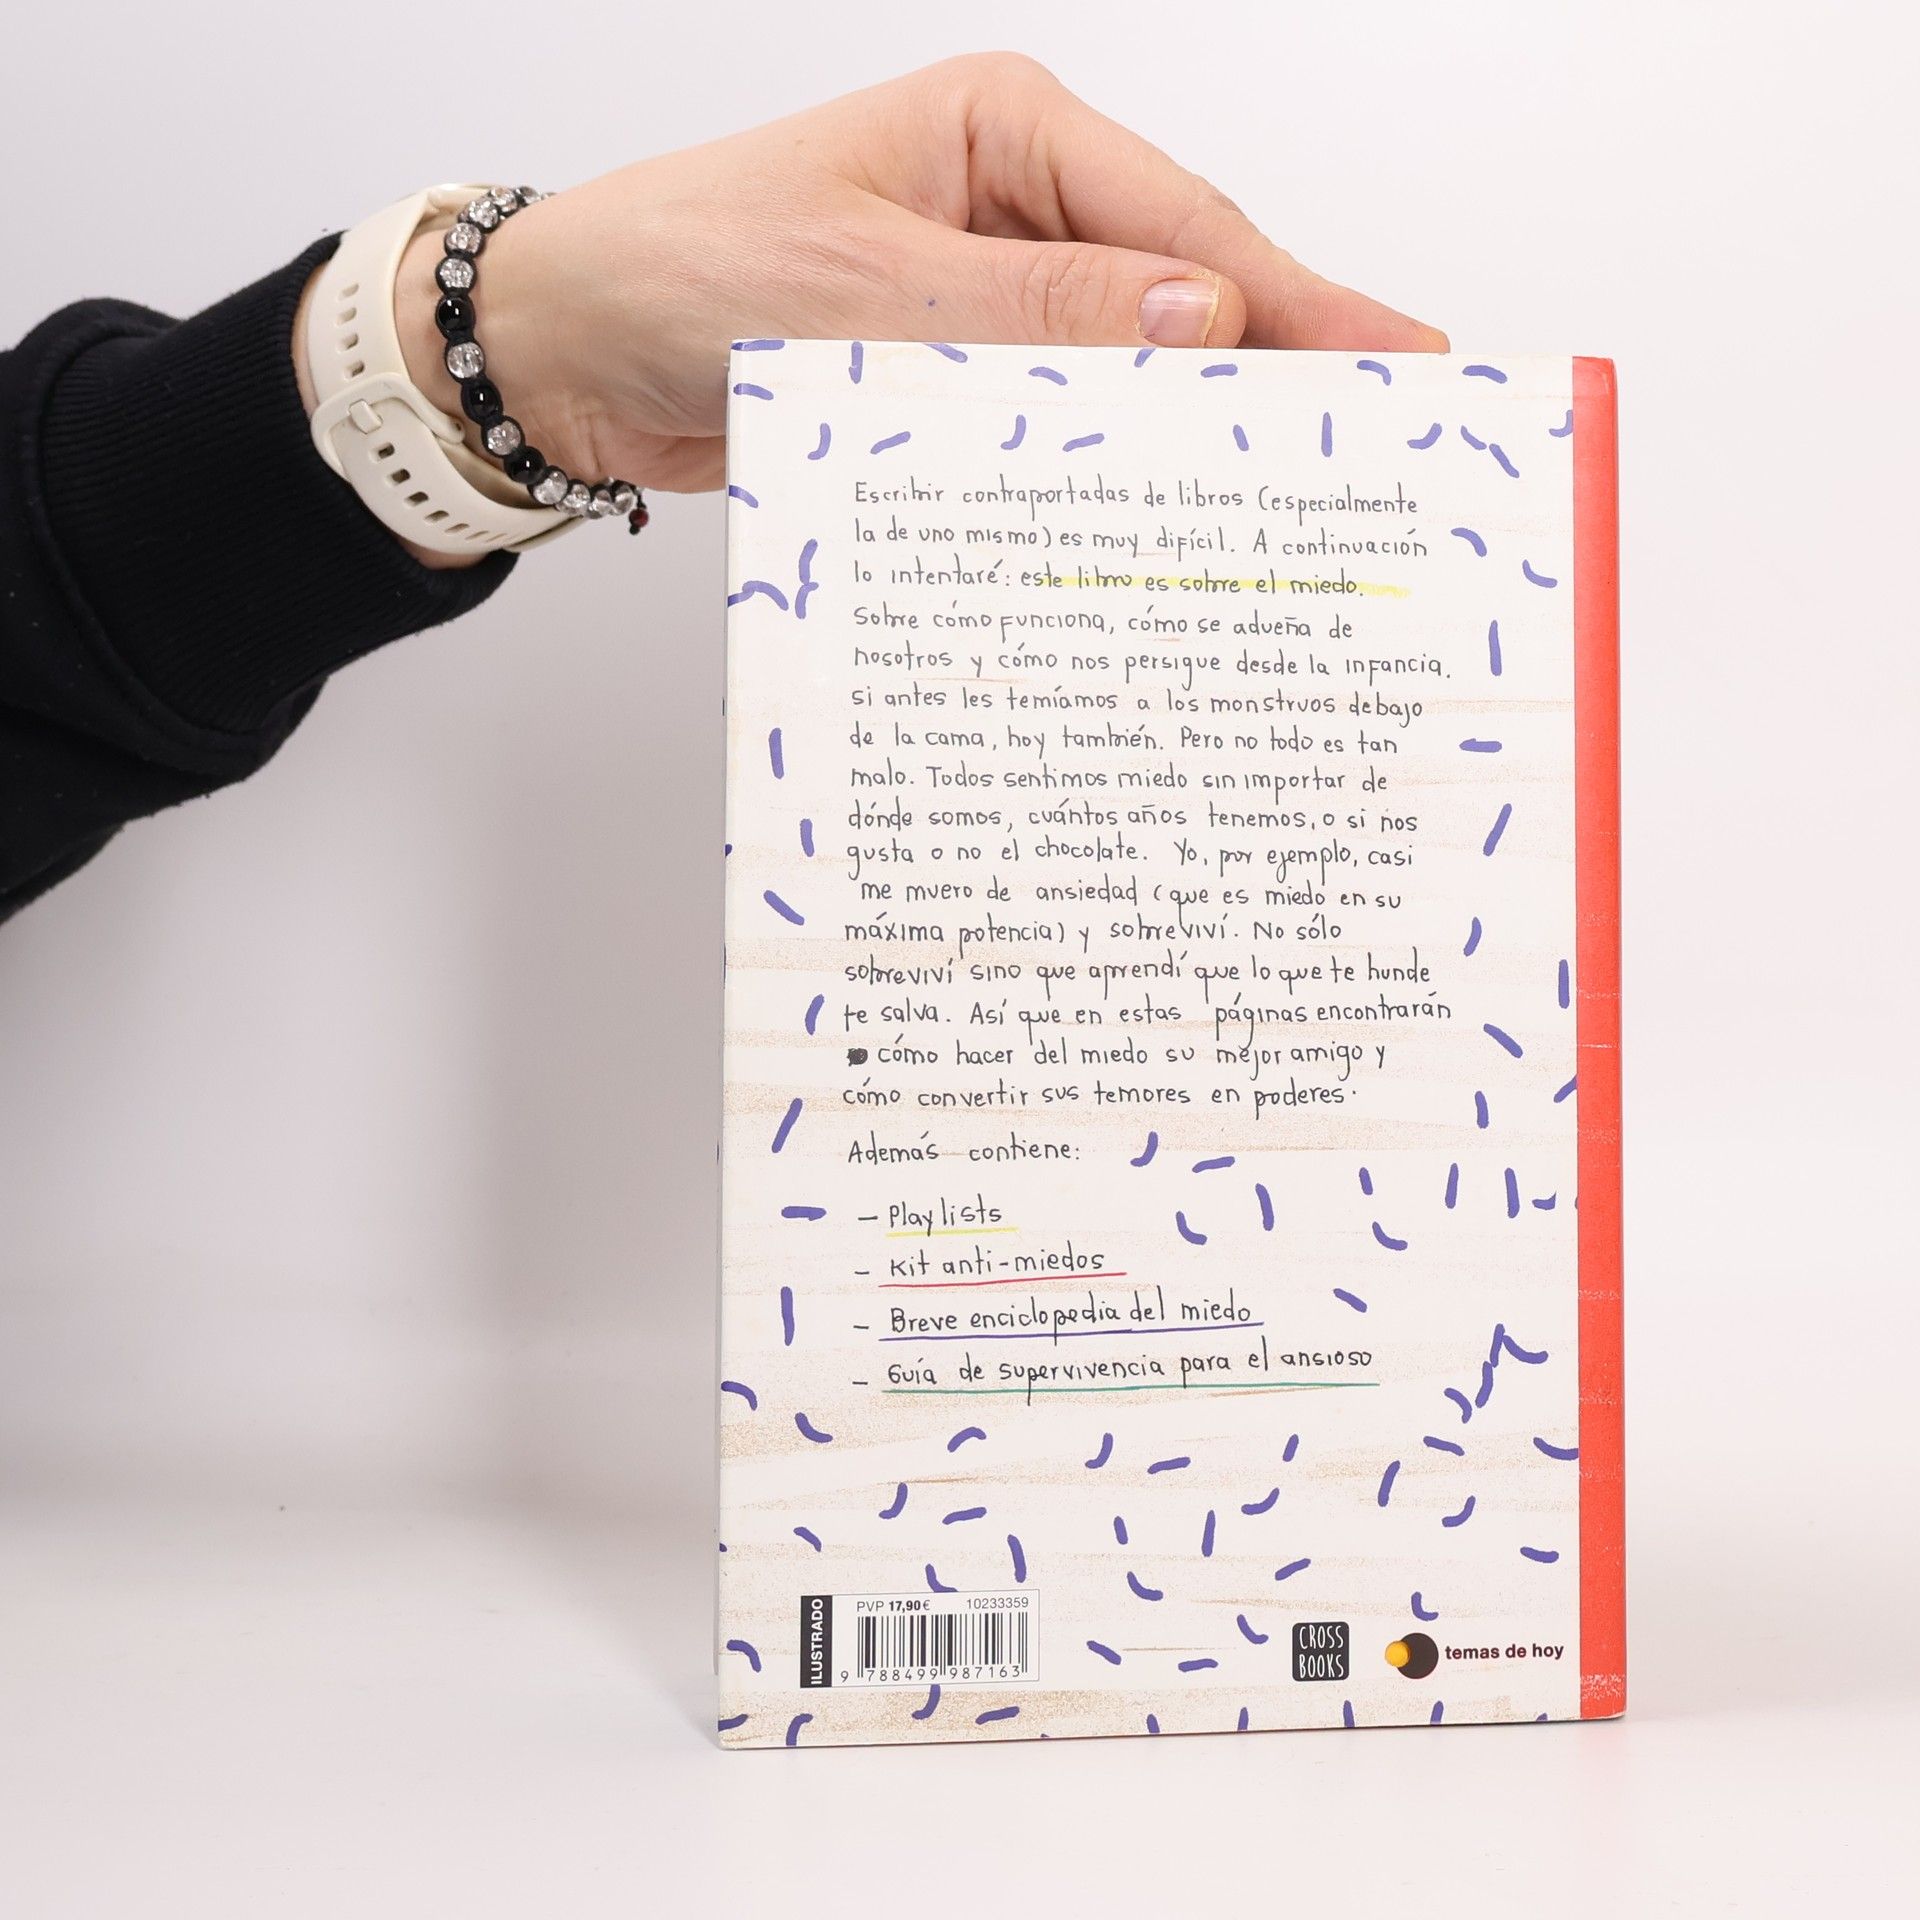 Escribir contraportadas de libros (especialmente
la de uno mismo) es muy difícil. A continuación
lo intentaré: este libro es sobre el miedo.
Sobre cómo funciona, cómo se adueña de
nosotros y cómo nos persigue desde la infancia.
si antes les temíamos a los monstruos debajo
de la cama, hoy también. Pero no todo es tan
malo. Todos sentimos miedo sin importar de
dónde somos, cuántos años tenemos, o si nos
gusta o no el chocolate. Yo, por ejemplo, casi
me muero de ansiedad (que es miedo en su
máxima potencia) y sobreviví. No sólo
sobreviví sino que aprendí que lo que te hunde
te salva. Así que en estas páginas encontrarán
cómo hacer del miedo su mejor amigo y
cómo convertir sus temores en poderes.
Además contiene:
– Playlists
– Kit anti-miedos
– Breve enciclopedia del miedo
– Guía de supervivencia para el ansioso
ILUSTRADO
PVP 17,90€ 10233359
9 788499 987163
CROSS
BOOKS
temas de hoy